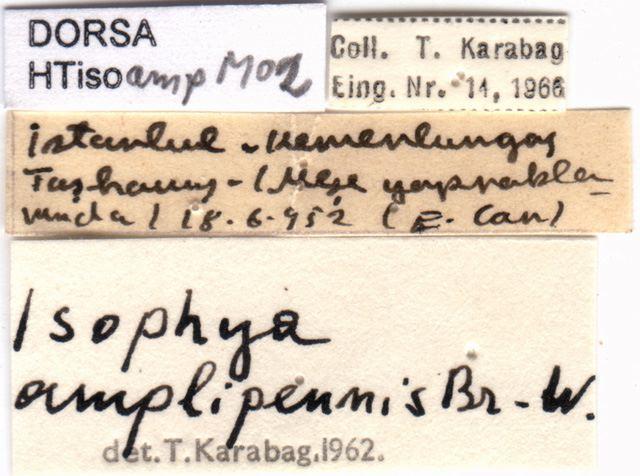 DORSA
HTisoamp M02
Coll. T. Karabag
Eing. Nr. 14, 1966
İstanbul
(Meşe yaprakla
rında) 18.6.952 (E. Can)
Isophya
amplipennis Br-W.
det.T.Karabag.1962.